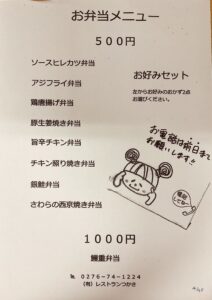 お弁当メニュー
500円
ソースヒレカツ弁当
アジフライ弁当
鶏唐揚げ弁当
豚生姜焼き弁当
旨辛チキン弁当
チキン照り焼き弁当
銀鮭弁当
さわらの西京焼き弁当
お好みセット
左からお好みのおかず2点
お選びください。
お電話は前日まで
お願いします!!
1000円
鰻重弁当
℡ 0276-74-1224
(有)レストランつかさ